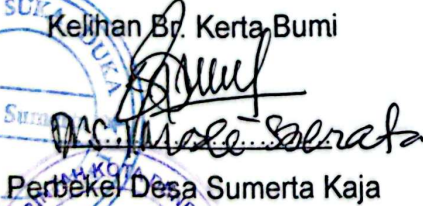 SUKA DUKA
Kelihan Br. Kerta Bumi
Sum
Drs. Made Serata
Perbekel Desa Sumerta Kaja